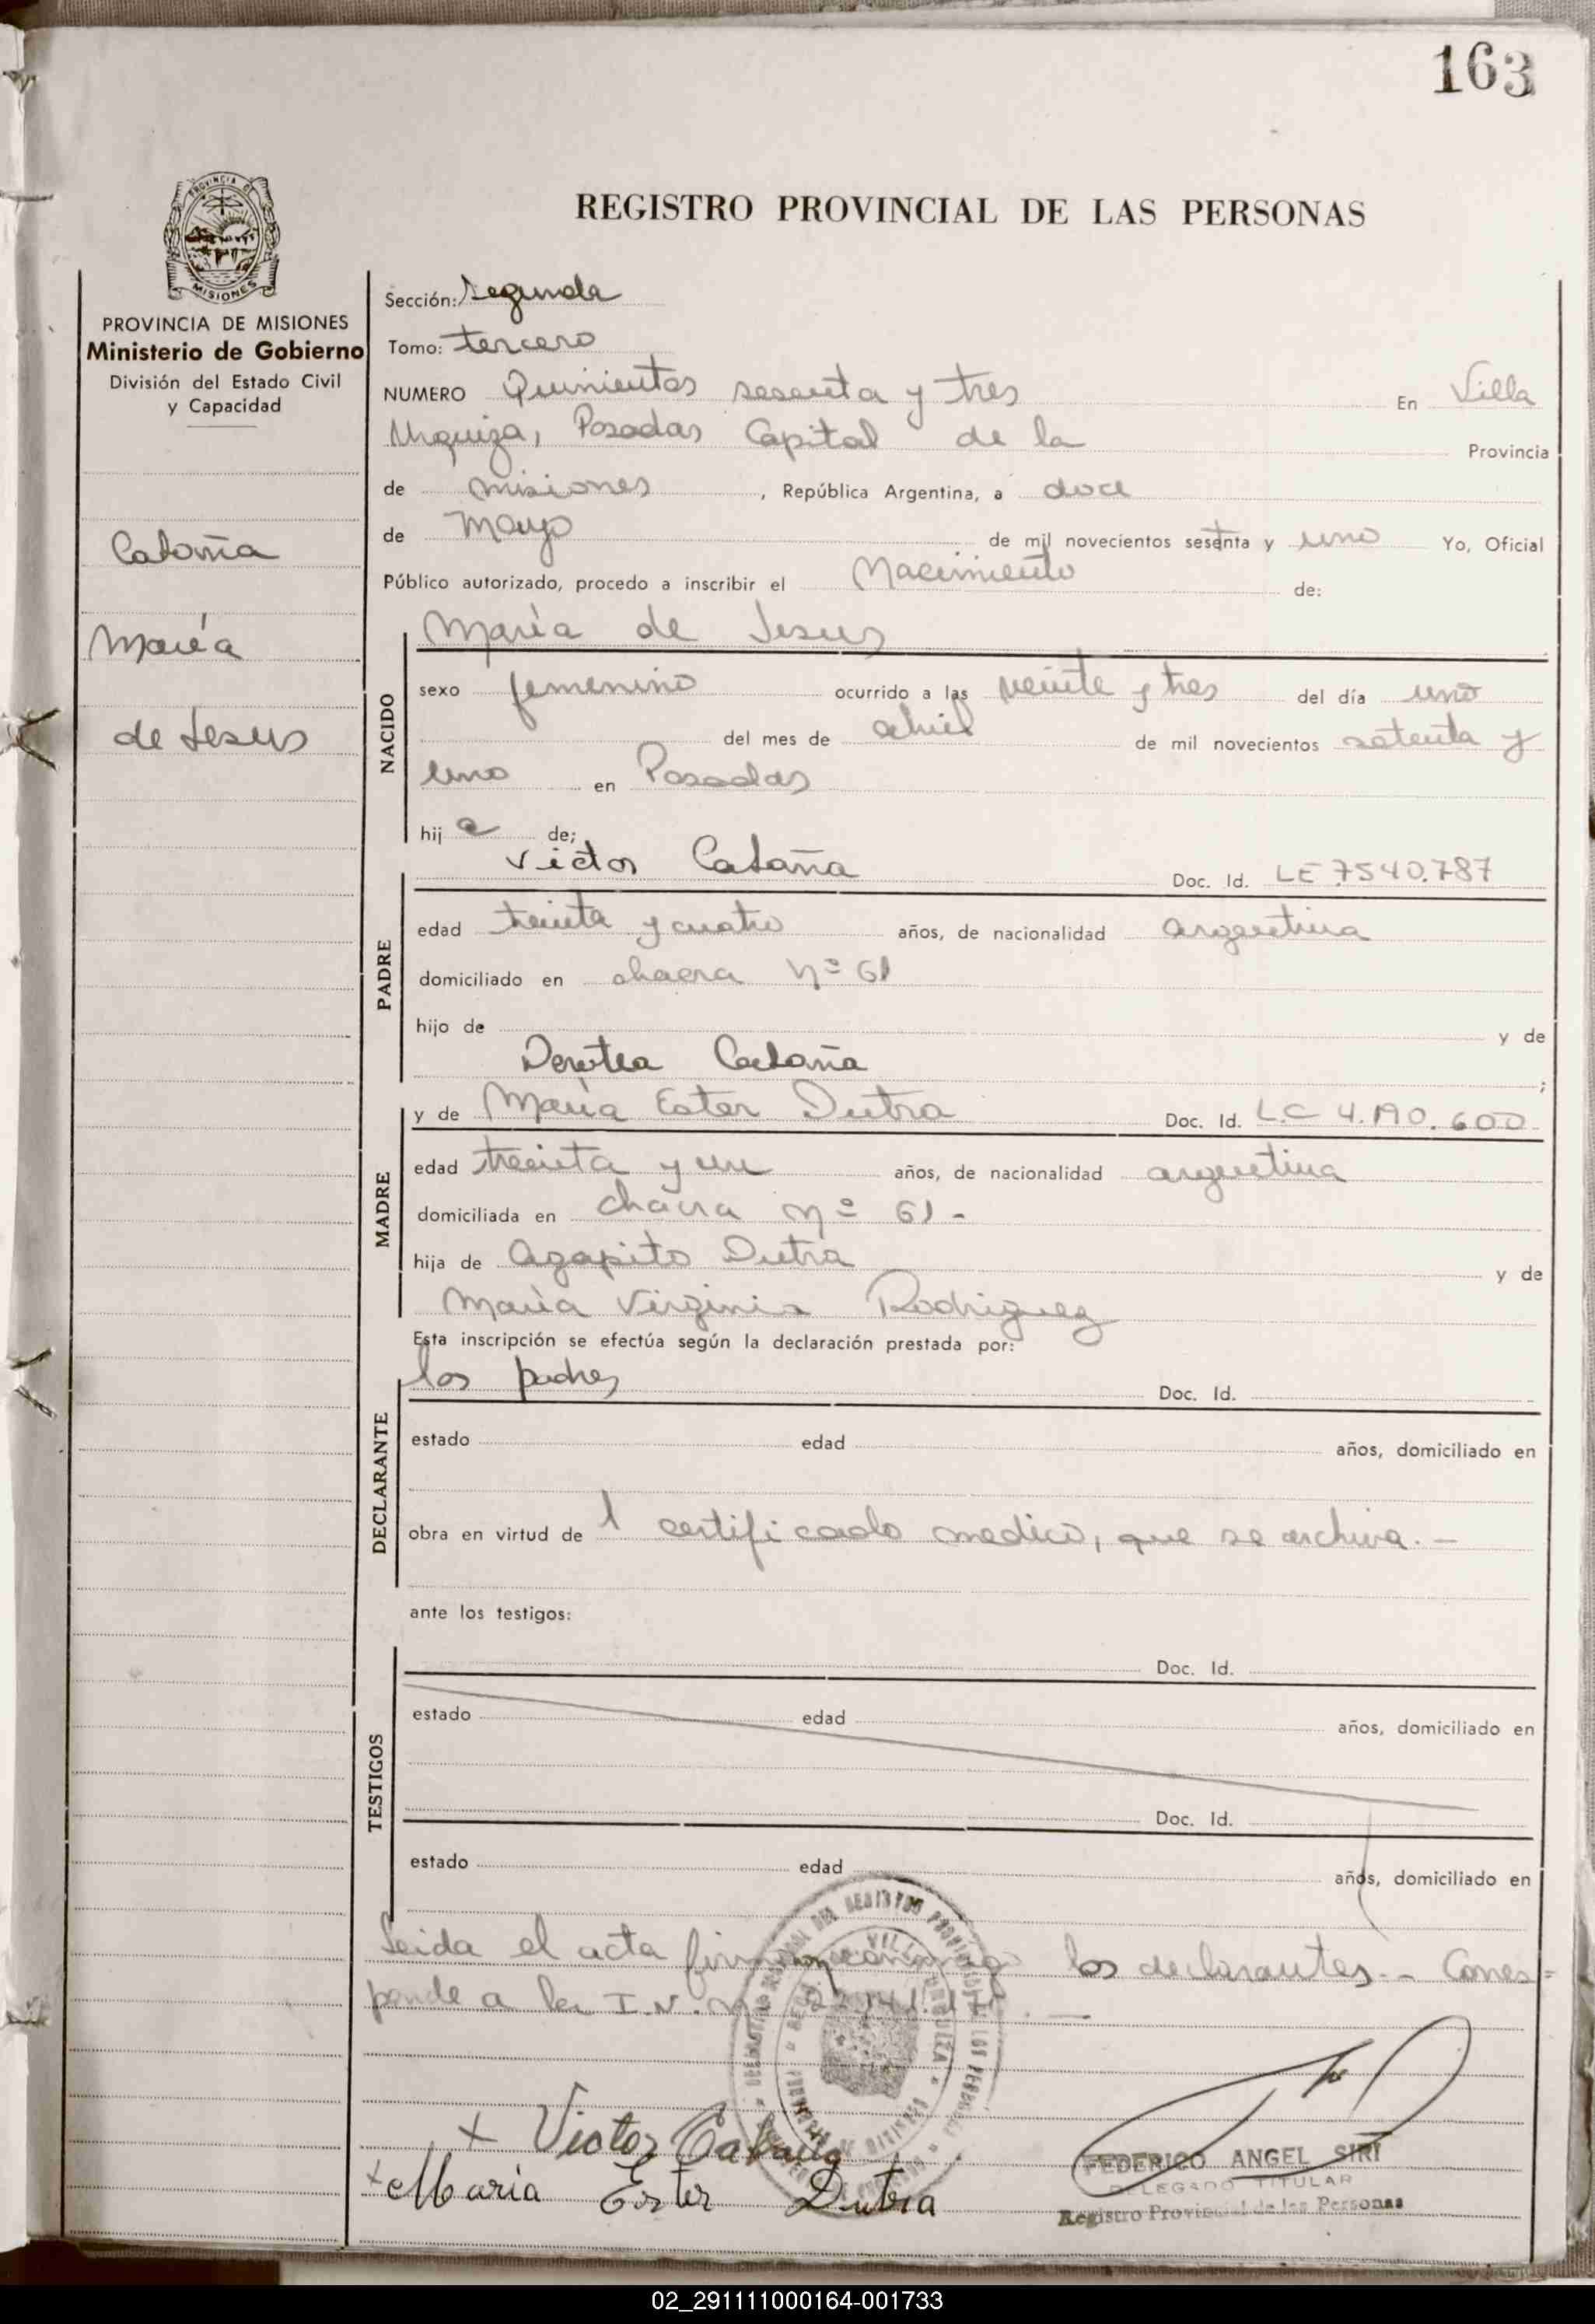 163
PROVINCIA DE MISIONES
MISIONES
PROVINCIA DE MISIONES
Ministerio de Gobierno
División del Estado Civil
y Capacidad
Cataña
María
de Jesus
REGISTRO PROVINCIAL DE LAS PERSONAS
Sección: Segunda
Tomo: tercero
NUMERO Quinientos sesenta y tres En Villa
Urquiza, Posadas Capital de la Provincia
de misiones, República Argentina, a doce
de mayo de mil novecientos sesenta y uno Yo, Oficial
Público autorizado, procedo a inscribir el Nacimiento de:
NACIDO
María de Jesus
sexo femenino ocurrido a las veinte y tres del día uno
del mes de abril de mil novecientos setenta y
uno en Posadas
hij a de;
PADRE
Victor Cataña Doc. Id. LE 7540.787
edad treinta y cuatro años, de nacionalidad argentina
domiciliado en chacra nº 61
hijo de y de
Derotea Cataña ;
MADRE
y de María Ester Dutra Doc. Id. L.C 4.190.600
edad treinta y un años, de nacionalidad argentina
domiciliada en chacra nº 61 -
hija de Agapito Dutra y de
María Virginia Rodriguez
Esta inscripción se efectúa según la declaración prestada por:
DECLARANTE
los padres Doc. Id.
estado edad años, domiciliado en
obra en virtud de 1 certificado medico, que se archiva. -
ante los testigos:
TESTIGOS
Doc. Id.
estado edad años, domiciliado en
Doc. Id.
estado edad años, domiciliado en
Leida el acta firman los declarantes.- Corres=
ponde a la I.N. nº
x Victor Cataña
x Maria Ester Dutra
FEDERICO ANGEL SIRI
DELEGADO TITULAR
Registro Provincial de las Personas
02_291111000164-001733